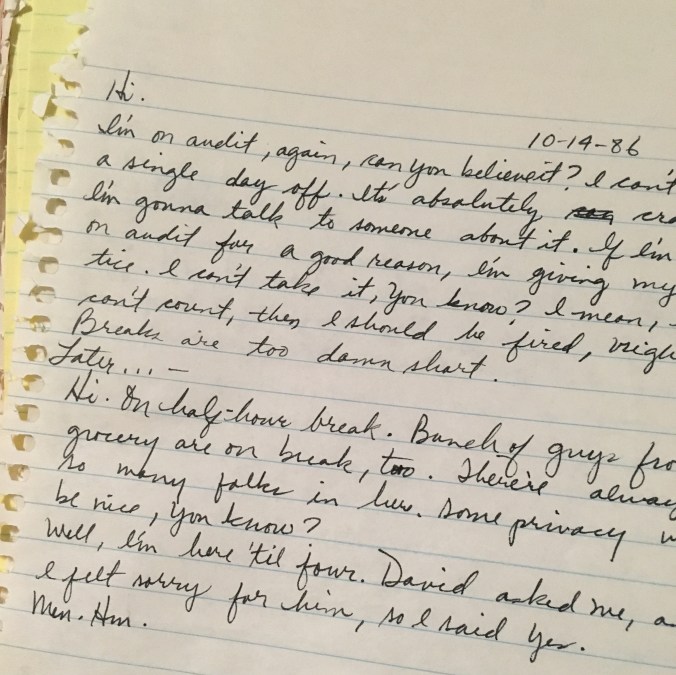 10-14-86
Hi.
I'm on audit, again, can you believe it? I can't
a single day off. It's absolutely cra
I'm gonna talk to someone about it. If I'm
on audit for a good reason, I'm giving my
tice. I can't take it, you know? I mean,
can't count, then I should be fired, righ
Breaks are too damn short.
Later... —
Hi. On half-hour break. Bunch of guys fro
grocery are on break, too. There's alway
so many folks in here. Some privacy w
be nice, you know?
Well, I'm here 'til four. David asked me, a
I felt sorry for him, so I said yes.
Men. Hm.